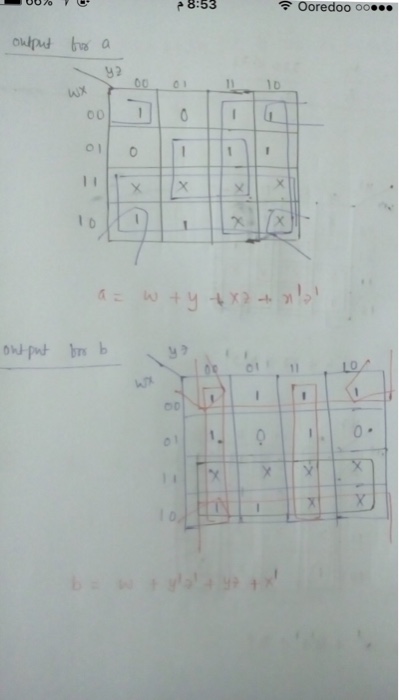 66% 8:53 Ooredoo
output for a
yz
wx 00 01 11 10
00 1 0 1 1
01 0 1 1 1
11 x x x x
10 1 1 x x
a = w + y + xz + x'z'
output for b
yz
wx 00 01 11 10
00 1 1 1 1
01 1 0 1 0
11 x x x x
10 1 1 x x
b = w + y'z' + yz + x'